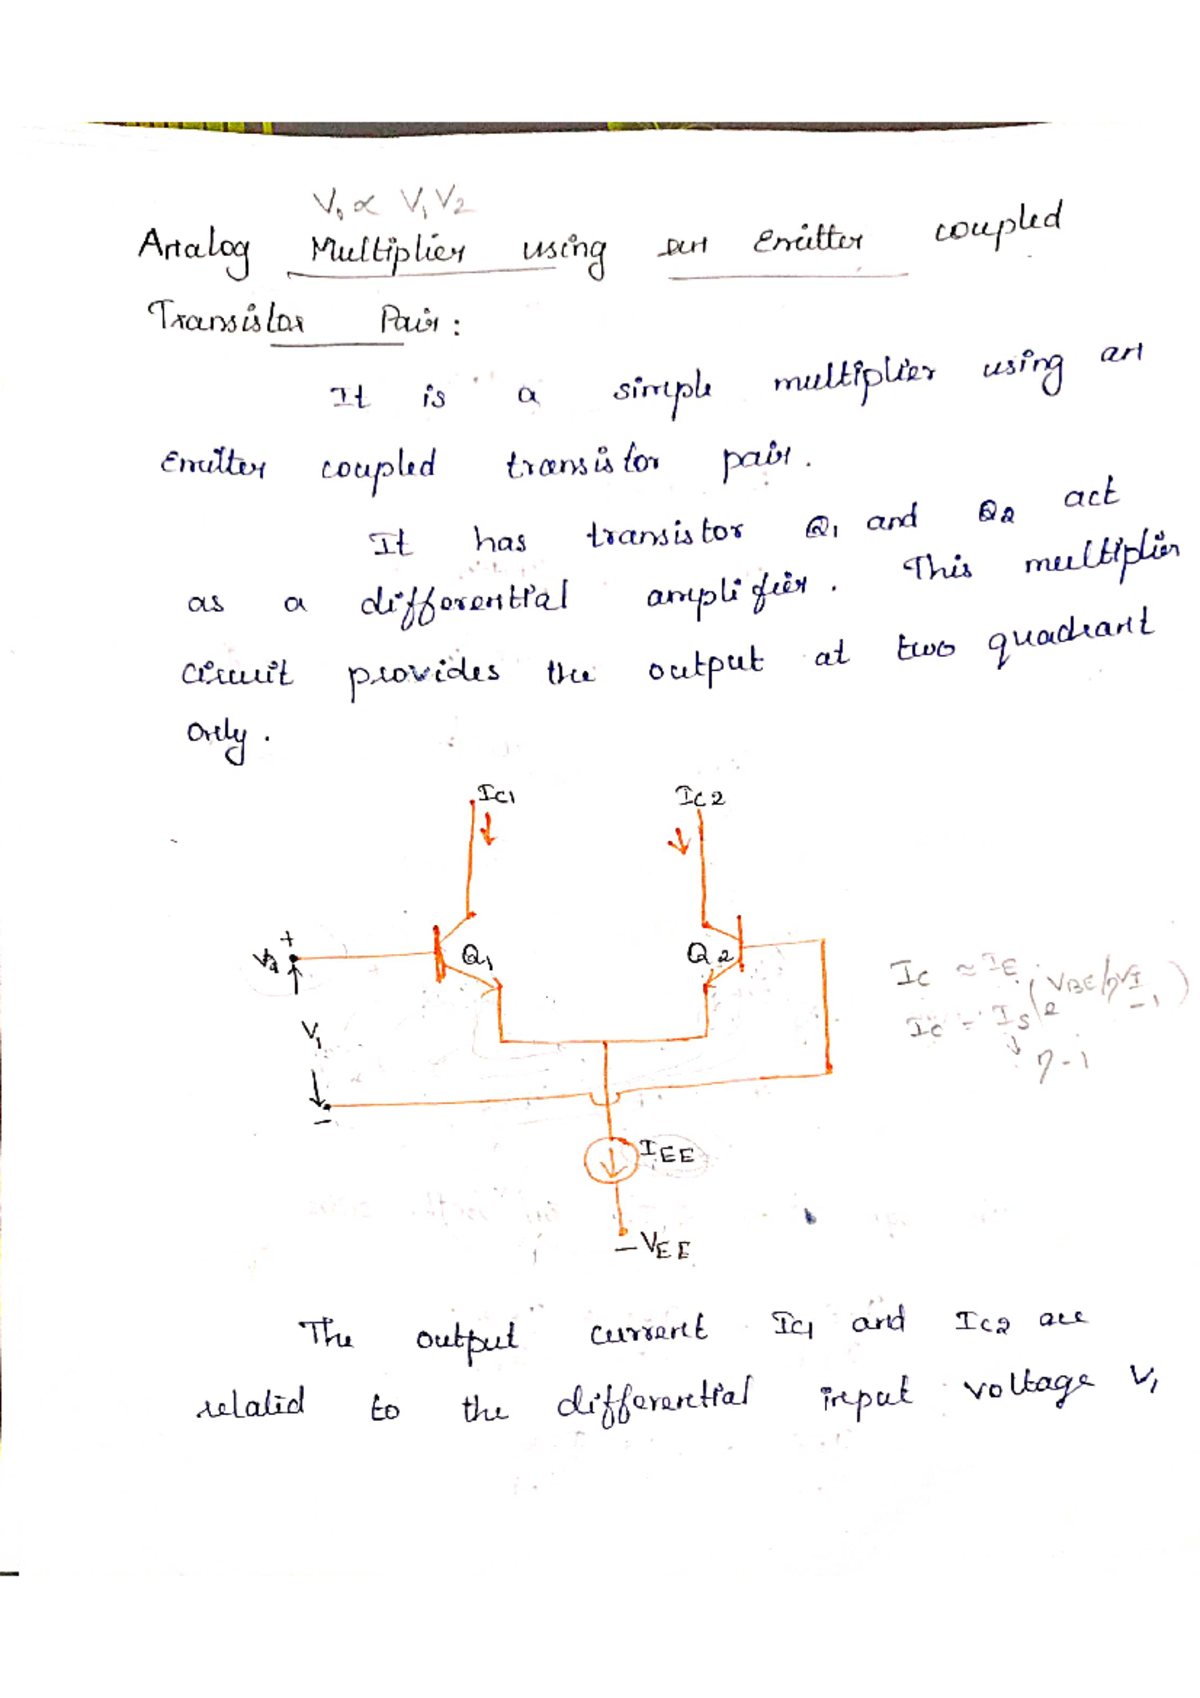 V₀ ∝ V₁V₂
Analog Multiplier using an Emitter coupled
Transistor Pair:
It is a simple multiplier using an
Emitter coupled transistor pair.
It has transistor Q₁ and Q2 act
as a differential amplifier. This multiplier
circuit provides the output at two quadrant
only.
IC1 IC2
+
Q1 Q2
V1
−
IC ≈ IE
IC = IS(e VBE/ηVT −1)
η-1
IEE
−VEE
The output current IC1 and IC2 are
related to the differential input voltage V₁